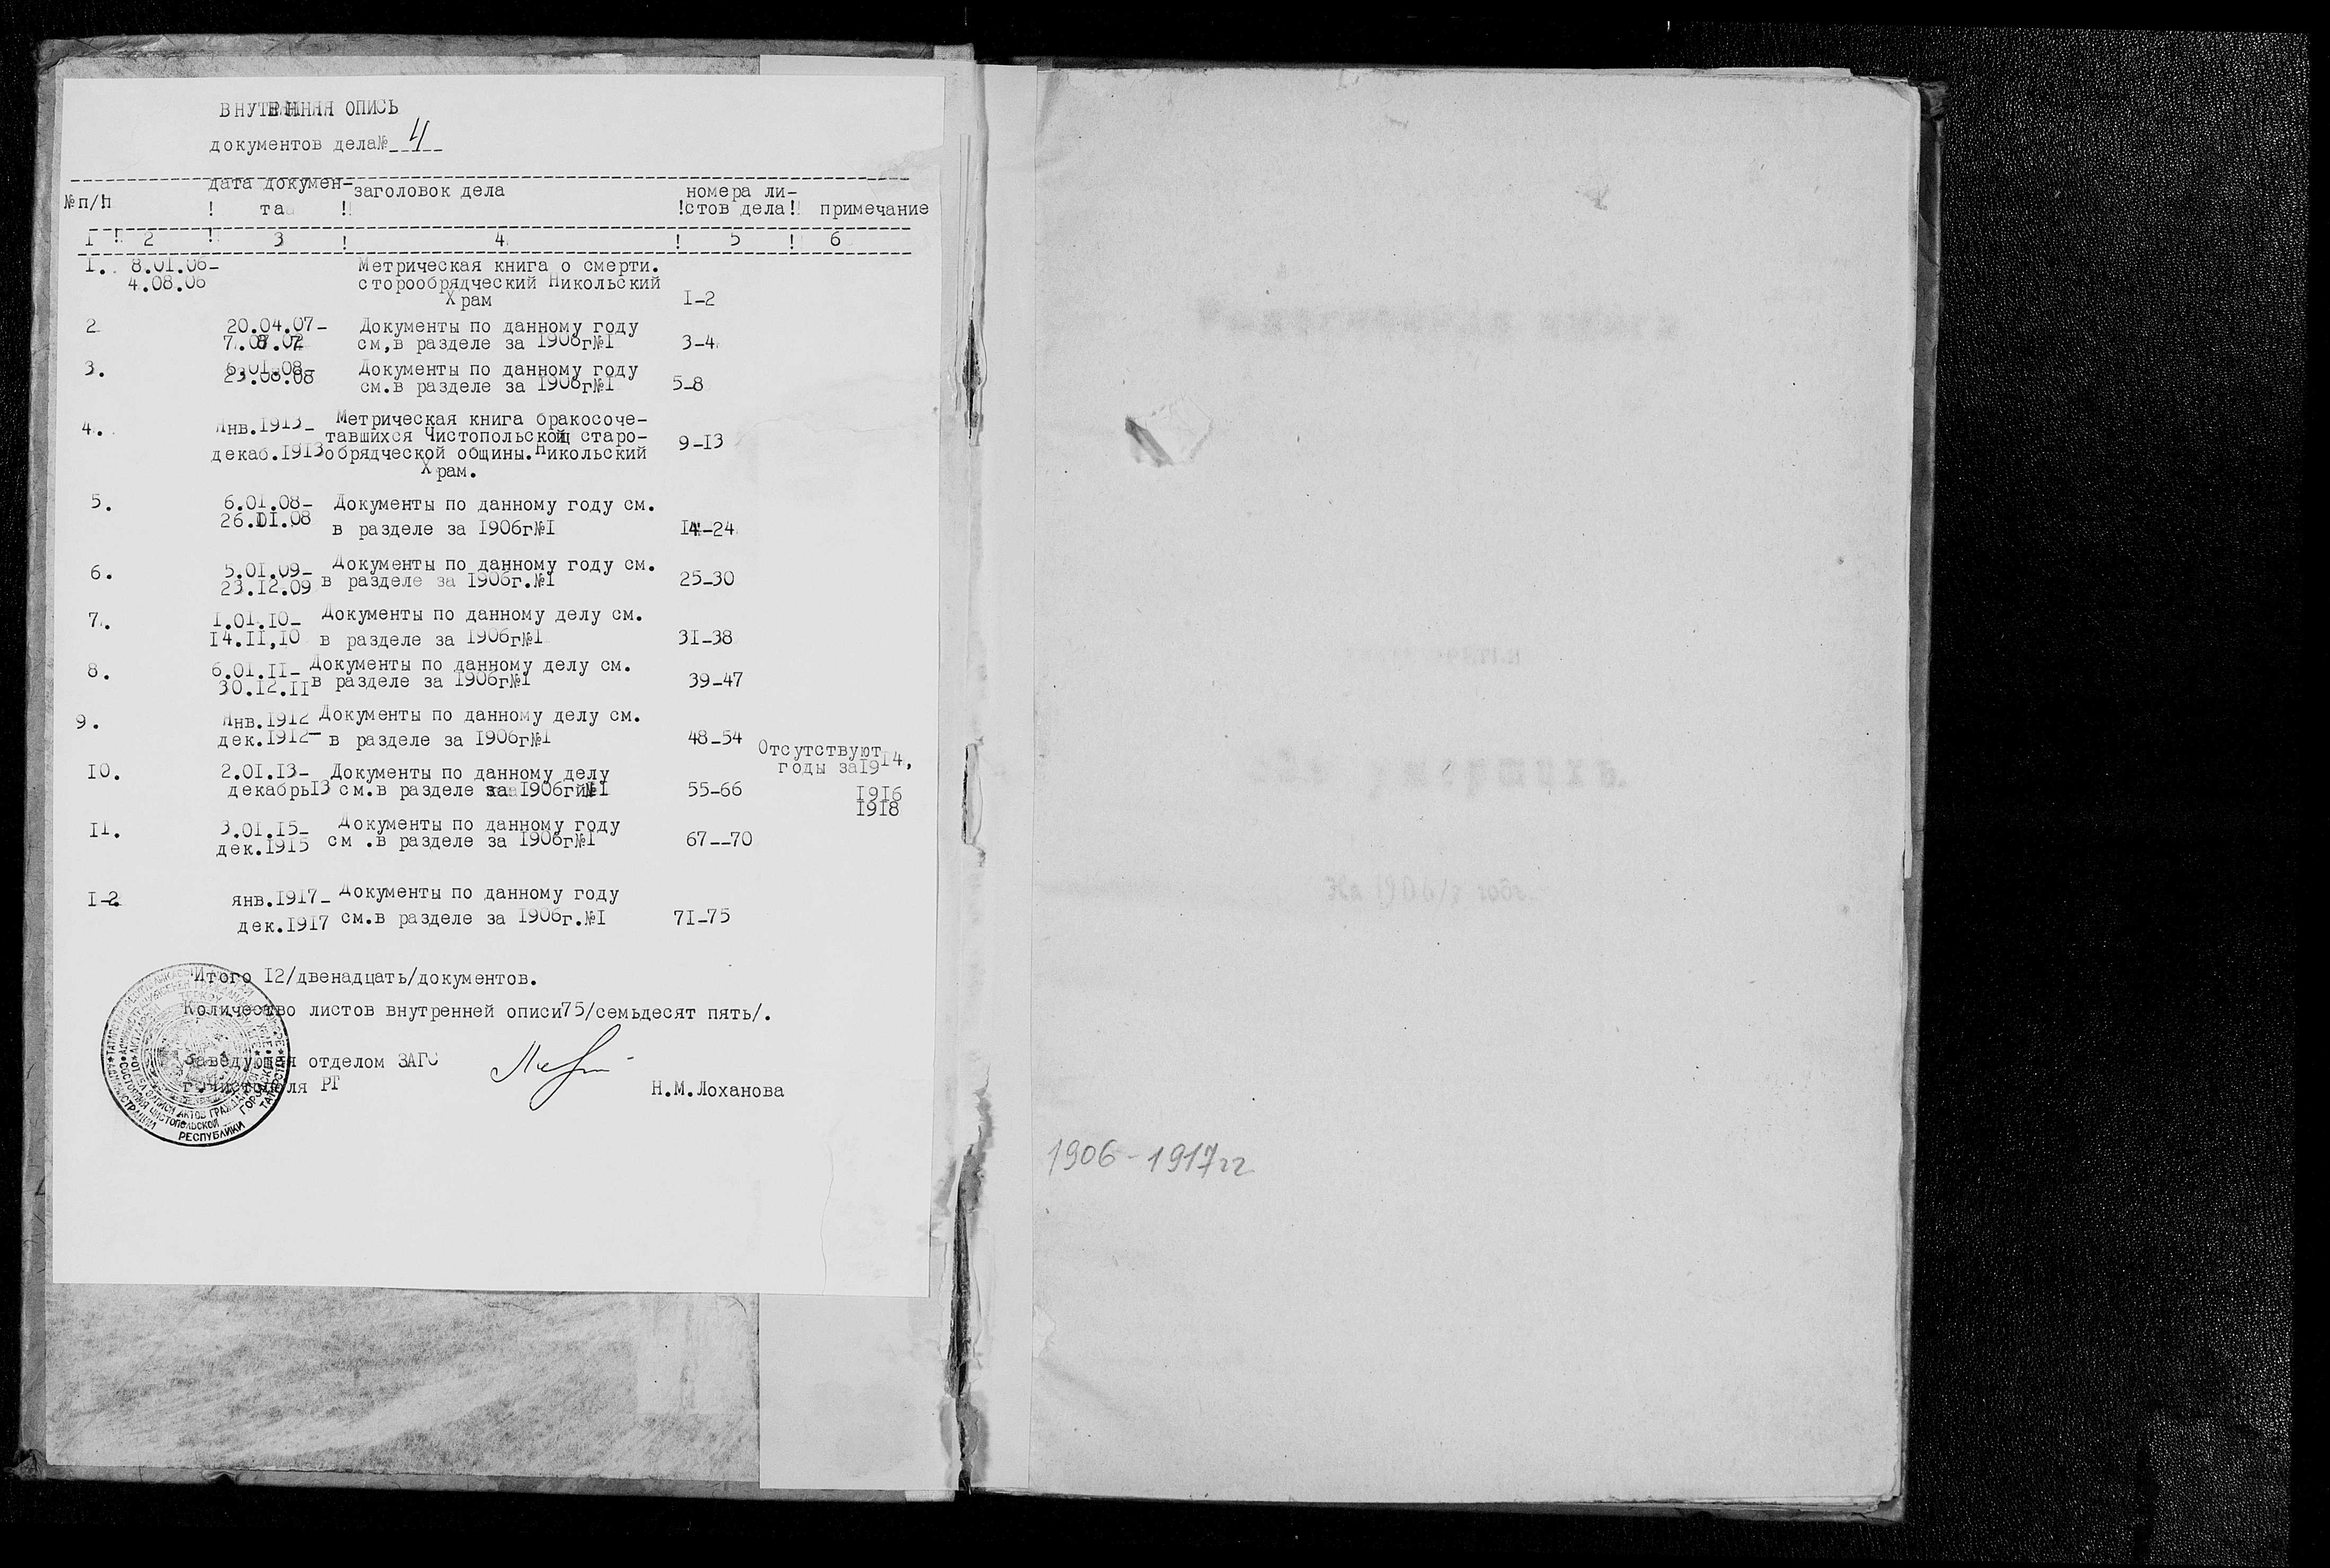 ВНУТЕННЯЯ ОПИСЬ
документов дела№ 4
№п/п ! дата докумен-та ! заголовок дела ! номера ли-стов дела ! примечание
I ! 2 ! 3 ! 4 ! 5 ! 6
I. 8.01.06- Метрическая книга о смерти.
4.08.06 сторообрядческий Никольский
Храм I-2
2 20.04.07- Документы по данному году
см,в разделе за 1906г№I 3-4
3. 6.01.08- Документы по данному году
23.08.08 см.в разделе за 1906г№I 5-8
4. Янв.1913- Метрическая книга бракосоче-
тавшихся Чистопольской старо-
декаб.1913 обрядческой общины.Никольский 9-I3
Храм.
5. 6.01.08- Документы по данному году см.
26.01.08 в разделе за I906г№I I4-24
6. 5.01.09- Документы по данному году см.
23.I2.09 в разделе за I906г.№I 25-30
7. I.01.I0- Документы по данному делу см.
I4.II,I0 в разделе за I906г№I 3I-38
8. 6.01.II- Документы по данному делу см.
30.I2.II в разделе за I906г№I 39-47
9. Янв.I9I2 Документы по данному делу см.
дек.I9I2- в разделе за I906г№I 48-54
Отсутствуют
годы за1914,
I0. 2.01.I3- Документы по данному делу
декабрьI3 см.в разделе за I906г№I 55-66 I9I6
I9I8
II. 3.01.I5- Документы по данному году
дек.I9I5 см .в разделе за I906г№I 67--70
I-2. янв.I9I7- Документы по данному году
дек.I9I7 см.в разделе за I906г.№I 7I-75
Итого I2/двенадцать/документов.
Количество листов внутренней описи75/семьдесят пять/.
Заведующая отделом ЗАГС
г.Чистополя РТ
Н.М.Лоханова
1906-1917гг
На 1906/7 годъ.